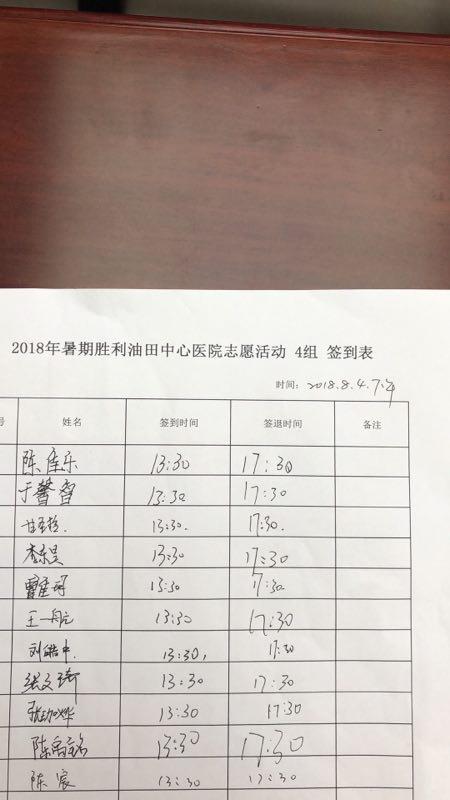 2018年暑期胜利油田中心医院志愿活动 4组 签到表
时间: 2018.8.4.下午
号 姓名 签到时间 签退时间 备注
陈佳乐 13:30 17:30
于馨睿 13:30 17:30
13:30. 17:30.
李东昊 13:30 17:30
13:30 17:30
王一舟 13:30 17:30
刘皓中. 13:30, 17:30
张文琦 13:30 17:30
13:30 17:30
陈 13:30 17:30
陈宸 13:30 17:30